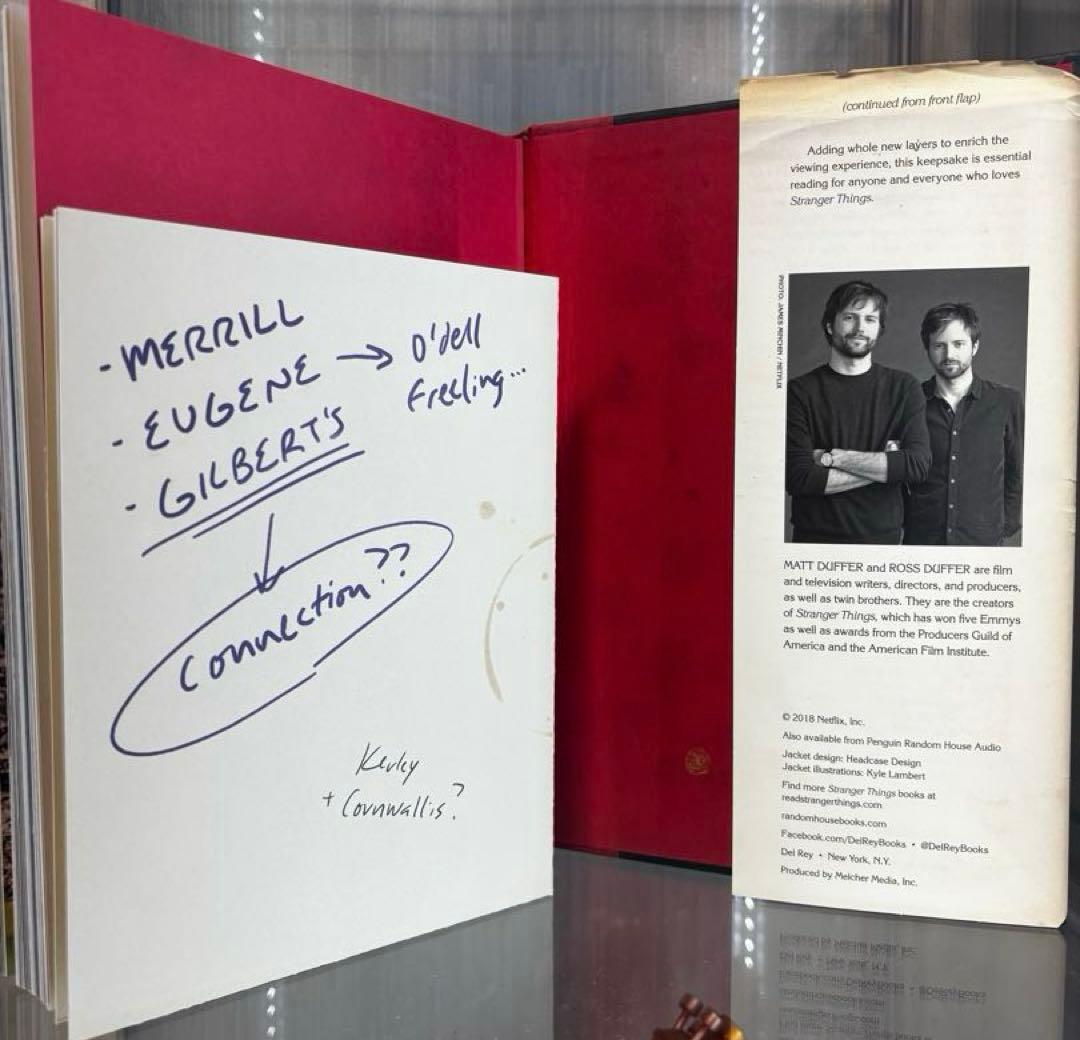 - MERRILL
- EUGENE → O'dell
Freeling...
- GILBERT'S
Connection??
Kerley
+ Cornwallis?
(continued from front flap)
Adding whole new layers to enrich the
viewing experience, this keepsake is essential
reading for anyone and everyone who loves
Stranger Things.
MATT DUFFER and ROSS DUFFER are film
and television writers, directors, and producers,
as well as twin brothers. They are the creators
of Stranger Things, which has won five Emmys
as well as awards from the Producers Guild of
America and the American Film Institute.
© 2018 Netflix, Inc.
Also available from Penguin Random House Audio
Jacket design: Headcase Design
Jacket illustrations: Kyle Lambert
Find more Stranger Things books at
readstrangerthings.com
randomhousebooks.com
Facebook.com/DelReyBooks • @DelReyBooks
Del Rey • New York, N.Y.
Produced by Melcher Media, Inc.
PHOTO: JAMES / NETFLIX